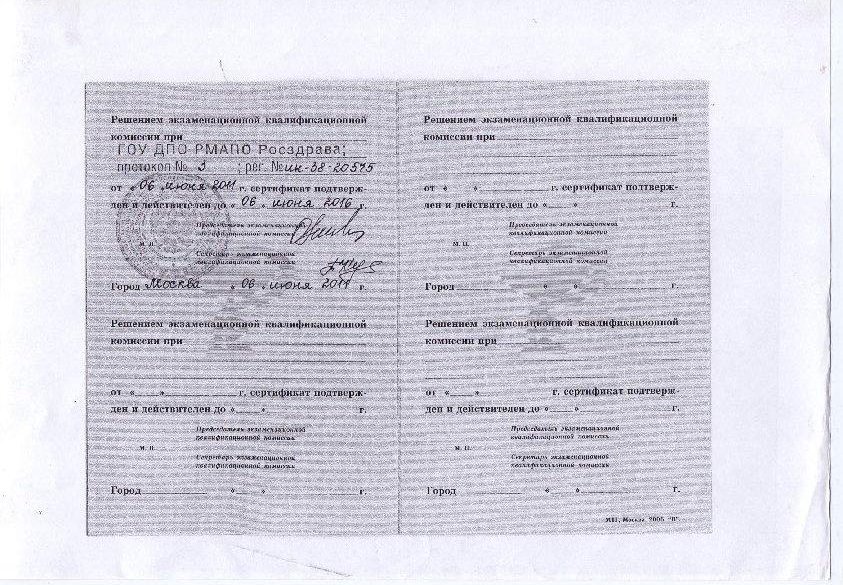 Решением экзаменационной квалификационной
комиссии при
ГОУ ДПО РМАПО Росздрава;
протокол № 3 ; рег. № ин-38-20575
от «06 июня 2011 г. сертификат подтверж-
ден и действителен до «06 » июня 2016 г.
Председатель экзаменационной
квалификационной комиссии
М. П.
Секретарь экзаменационной
квалификационной комиссии
Город Москва «06 » июня 2011 г.
Решением экзаменационной квалификационной
комиссии при
от « » г. сертификат подтверж-
ден и действителен до « » г.
Председатель экзаменационной
квалификационной комиссии
М. П.
Секретарь экзаменационной
квалификационной комиссии
Город « » г.
Решением экзаменационной квалификационной
комиссии при
от « » г. сертификат подтверж-
ден и действителен до « » г.
Председатель экзаменационной
квалификационной комиссии
М. П.
Секретарь экзаменационной
квалификационной комиссии
Город « » г.
Решением экзаменационной квалификационной
комиссии при
от « » г. сертификат подтверж-
ден и действителен до « » г.
Председатель экзаменационной
квалификационной комиссии
М. П.
Секретарь экзаменационной
квалификационной комиссии
Город « » г.
Москва, 2006